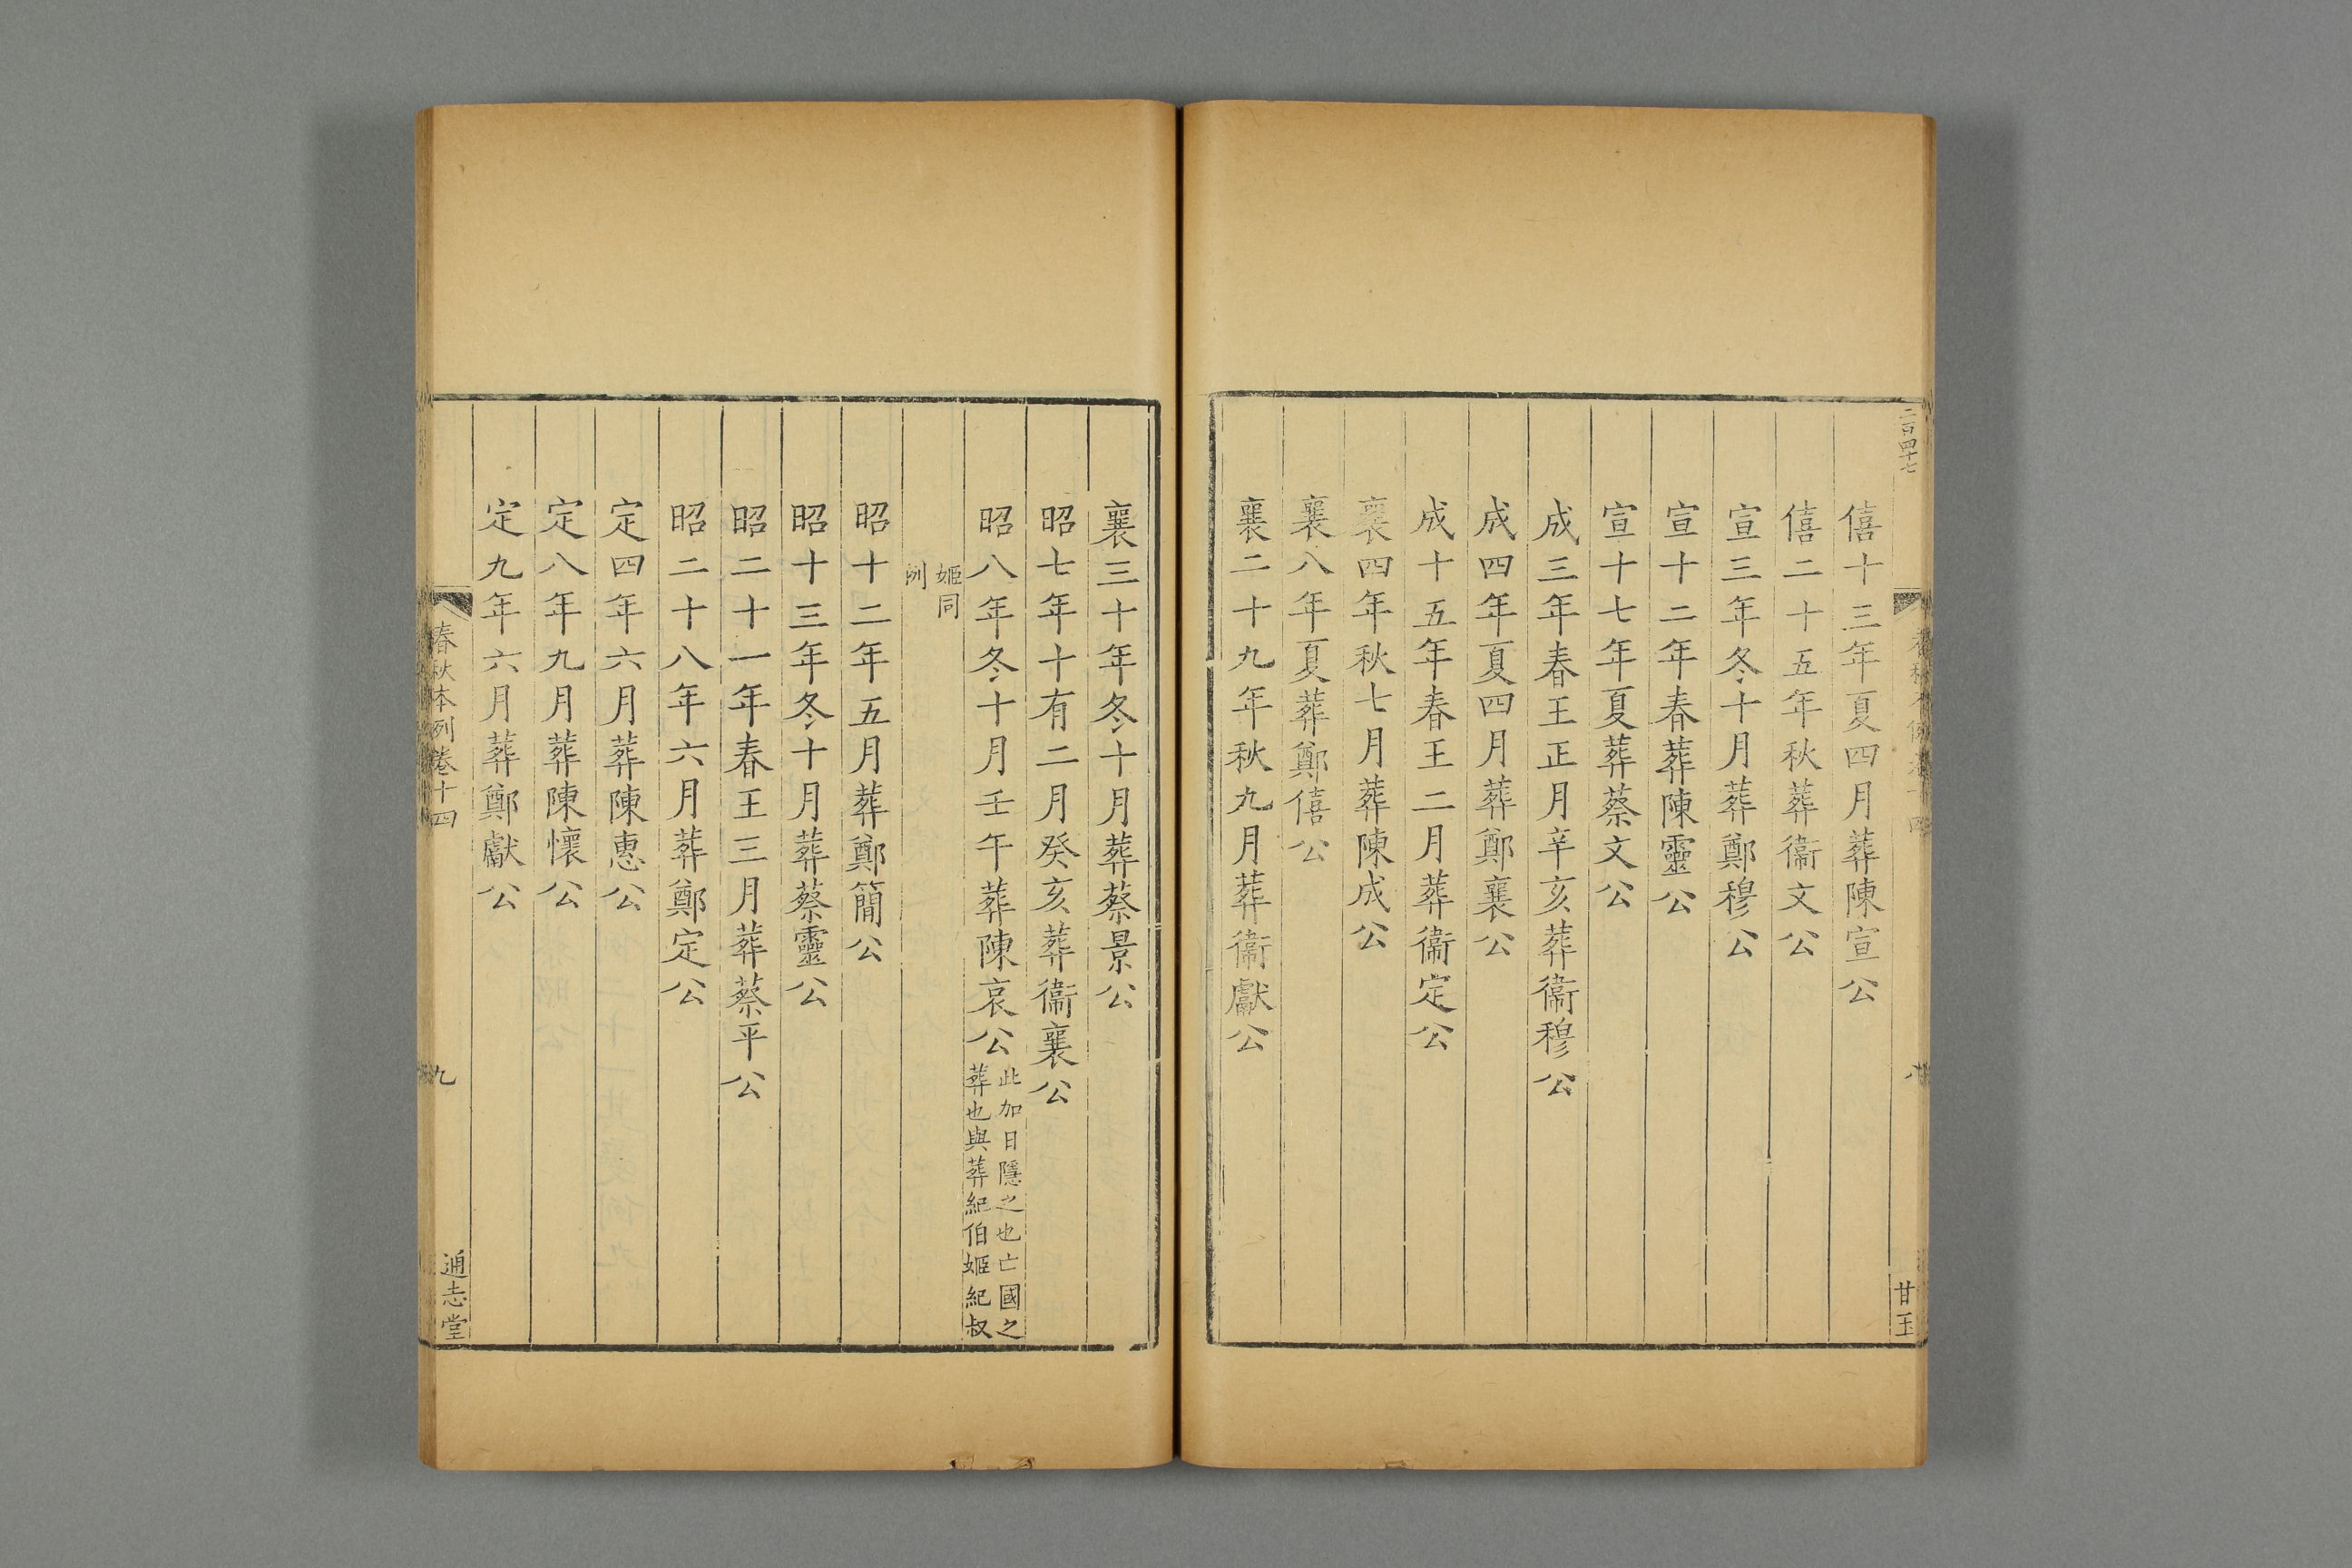 二百四十七
僖十三年夏四月葬陳宣公
僖二十五年秋葬衞文公
宣三年冬十月葬鄭穆公
宣十二年春葬陳靈公
宣十七年夏葬蔡文公
成三年春王正月辛亥葬衞穆公
成四年夏四月葬鄭襄公
成十五年春王二月葬衞定公
襄四年秋七月葬陳成公
襄八年夏葬鄭僖公
襄二十九年秋九月葬衞獻公
八
甘玉
襄三十年冬十月葬蔡景公
昭七年十有二月癸亥葬衞襄公
昭八年冬十月壬午葬陳哀公
此加日隱之也亡國之
葬也與葬紀伯姬紀叔
姬同
例
昭十二年五月葬鄭簡公
昭十三年冬十月葬蔡靈公
昭二十一年春王三月葬蔡平公
昭二十八年六月葬鄭定公
定四年六月葬陳惠公
定八年九月葬陳懷公
定九年六月葬鄭獻公
春秋本例卷十四
九
通志堂